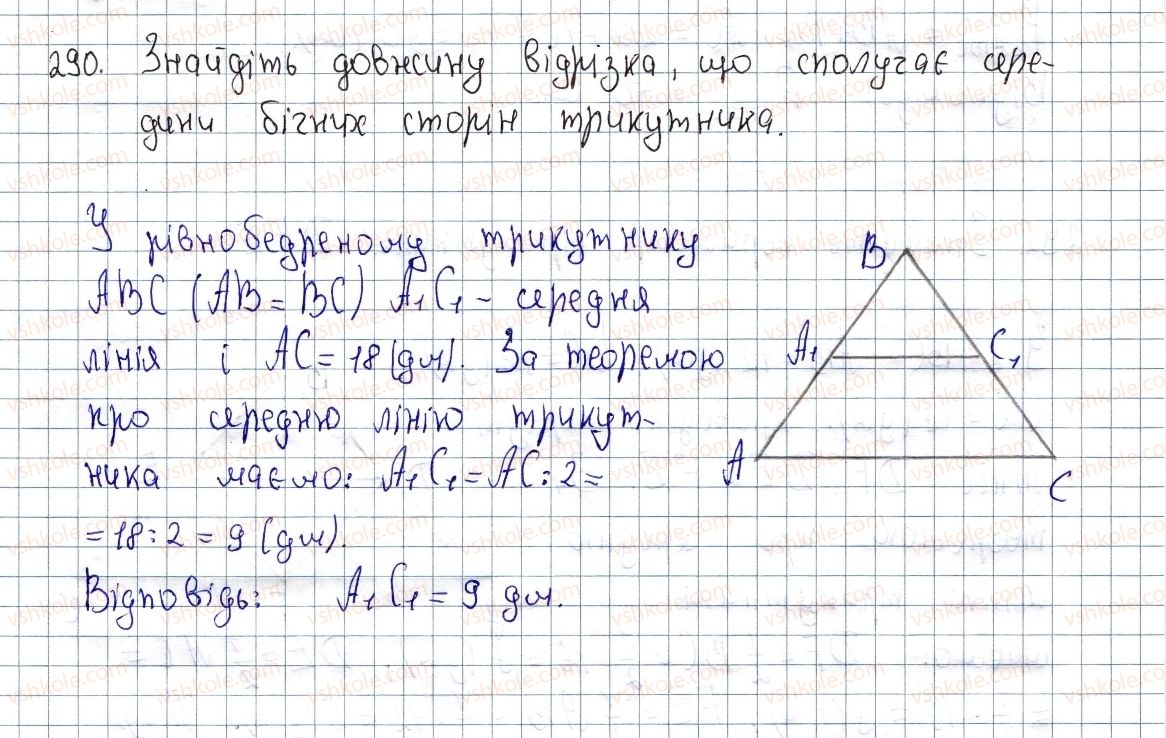 290. Знайдіть довжину відрізка, що сполучає сере-
дини бічних сторін трикутника.
У рівнобедреному трикутнику
ABC (AB = BC) A₁C₁ - середня
лінія і AC = 18 (дм). За теоремою
про середню лінію трикут-
ника маємо: A₁C₁ = AC : 2 =
= 18 : 2 = 9 (дм).
Відповідь: A₁C₁ = 9 дм.
B
A₁ C₁
A C
vshkole.com